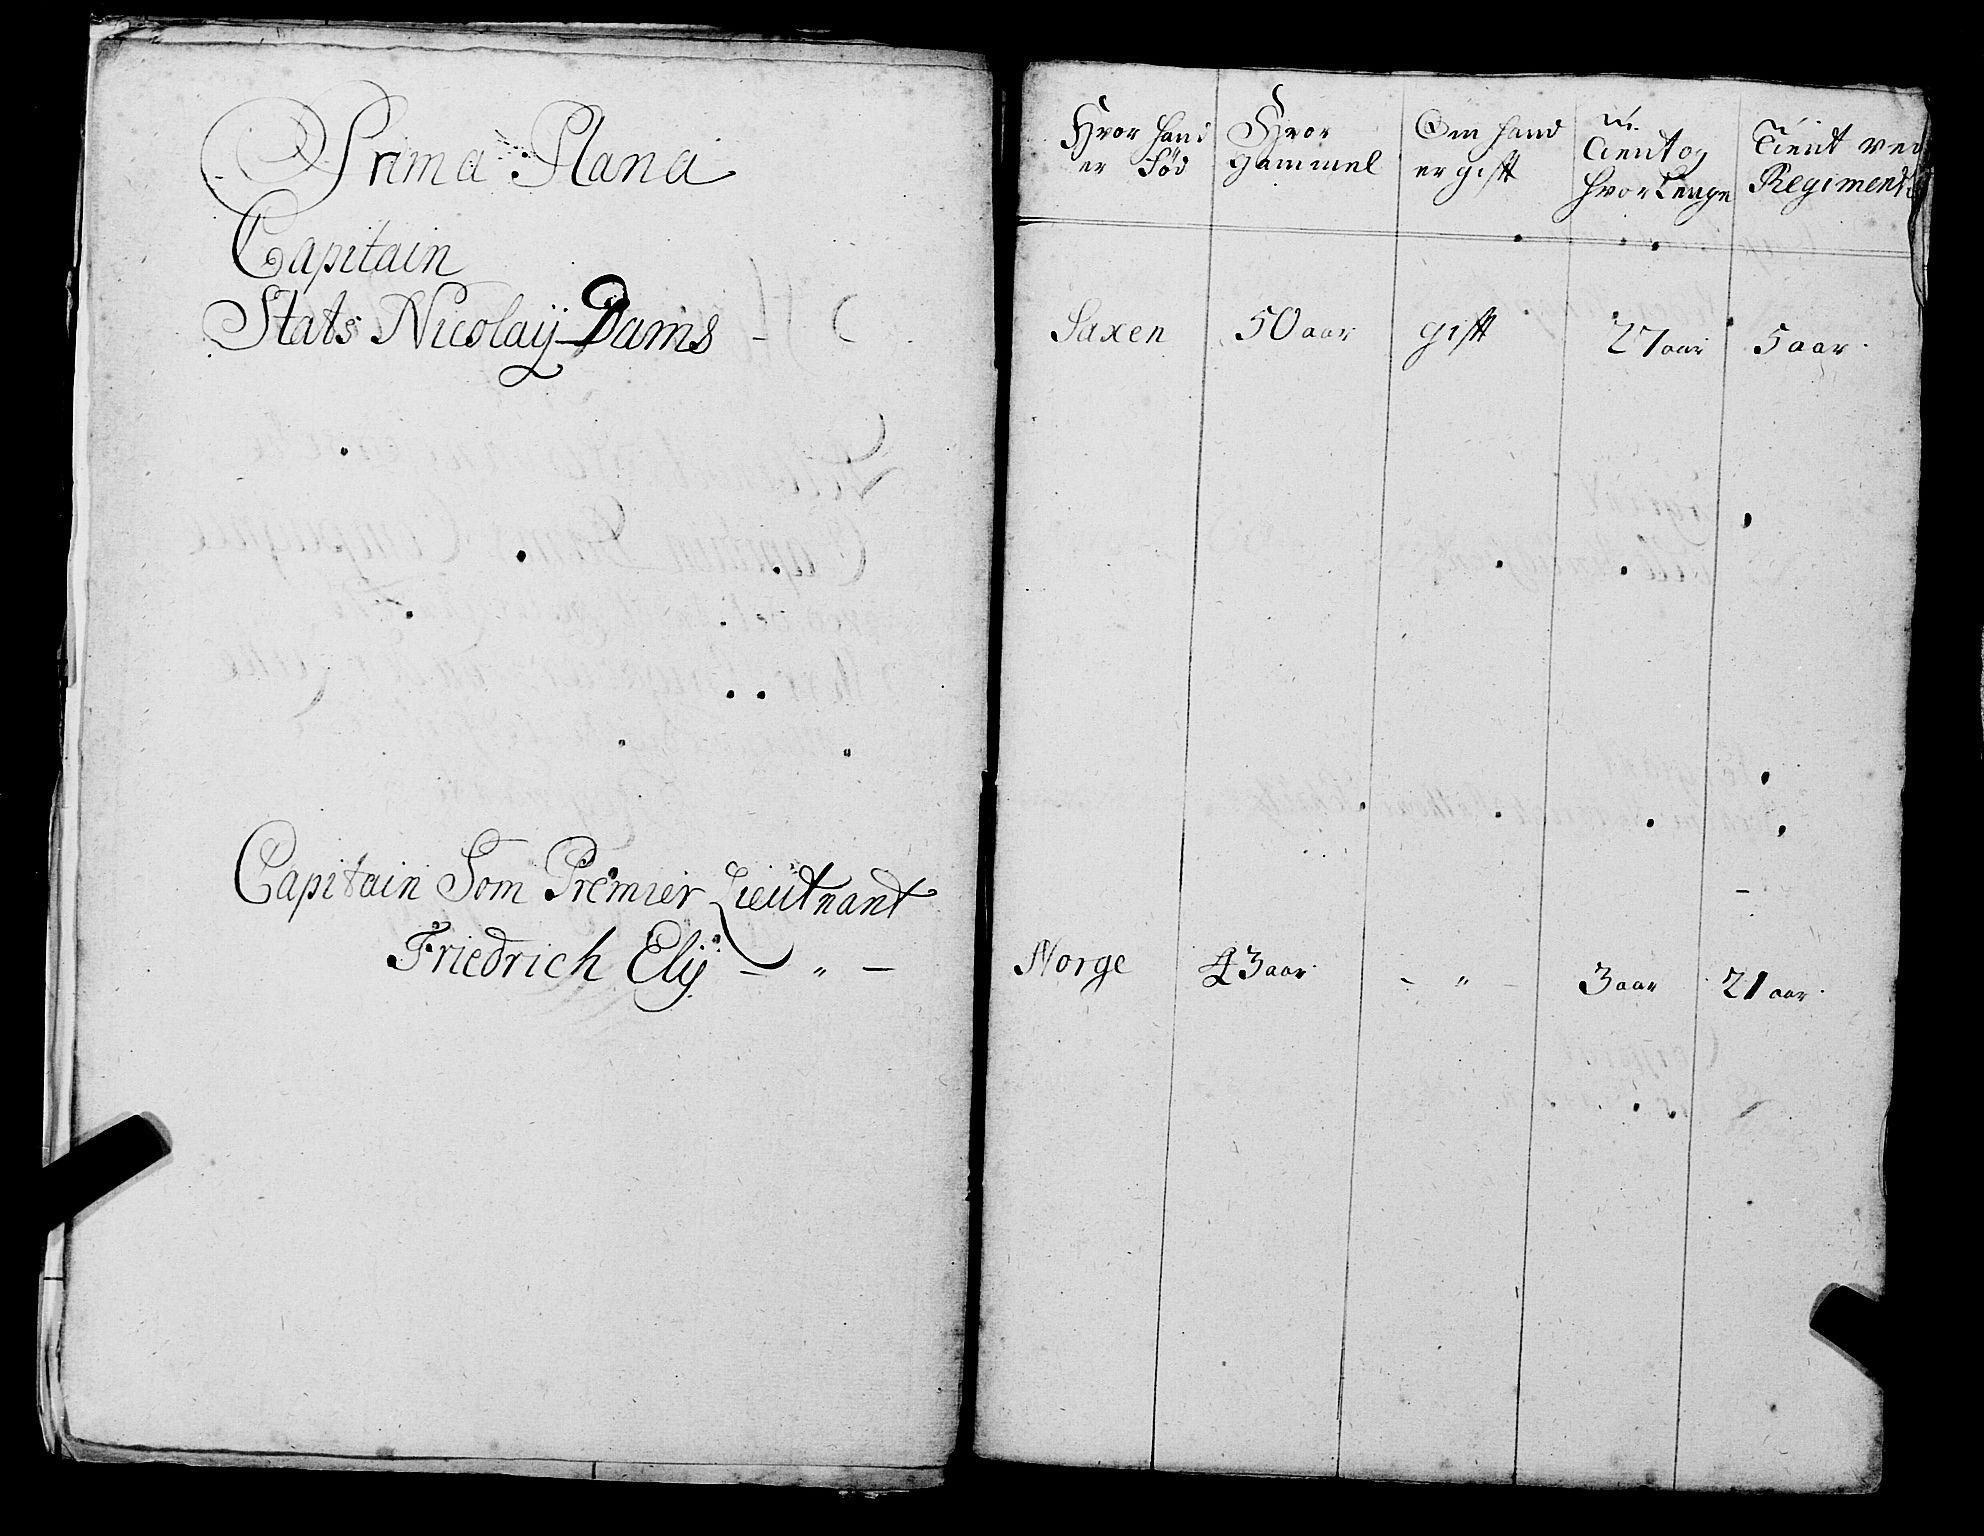 Prima Plana
Capitain
Stats Nicolaij Dams -
Capitain Som Premier Lieutnant
Friedrich Elÿ - " -
Hvor hand er Född
Hvor gammel
Om hand er gift
Tient og hvor Lenge
Tient ved Regimentet
Saxen 50 aar gift 27 aar 5 aar
Norge 43 aar - " - 3 aar 21 aar